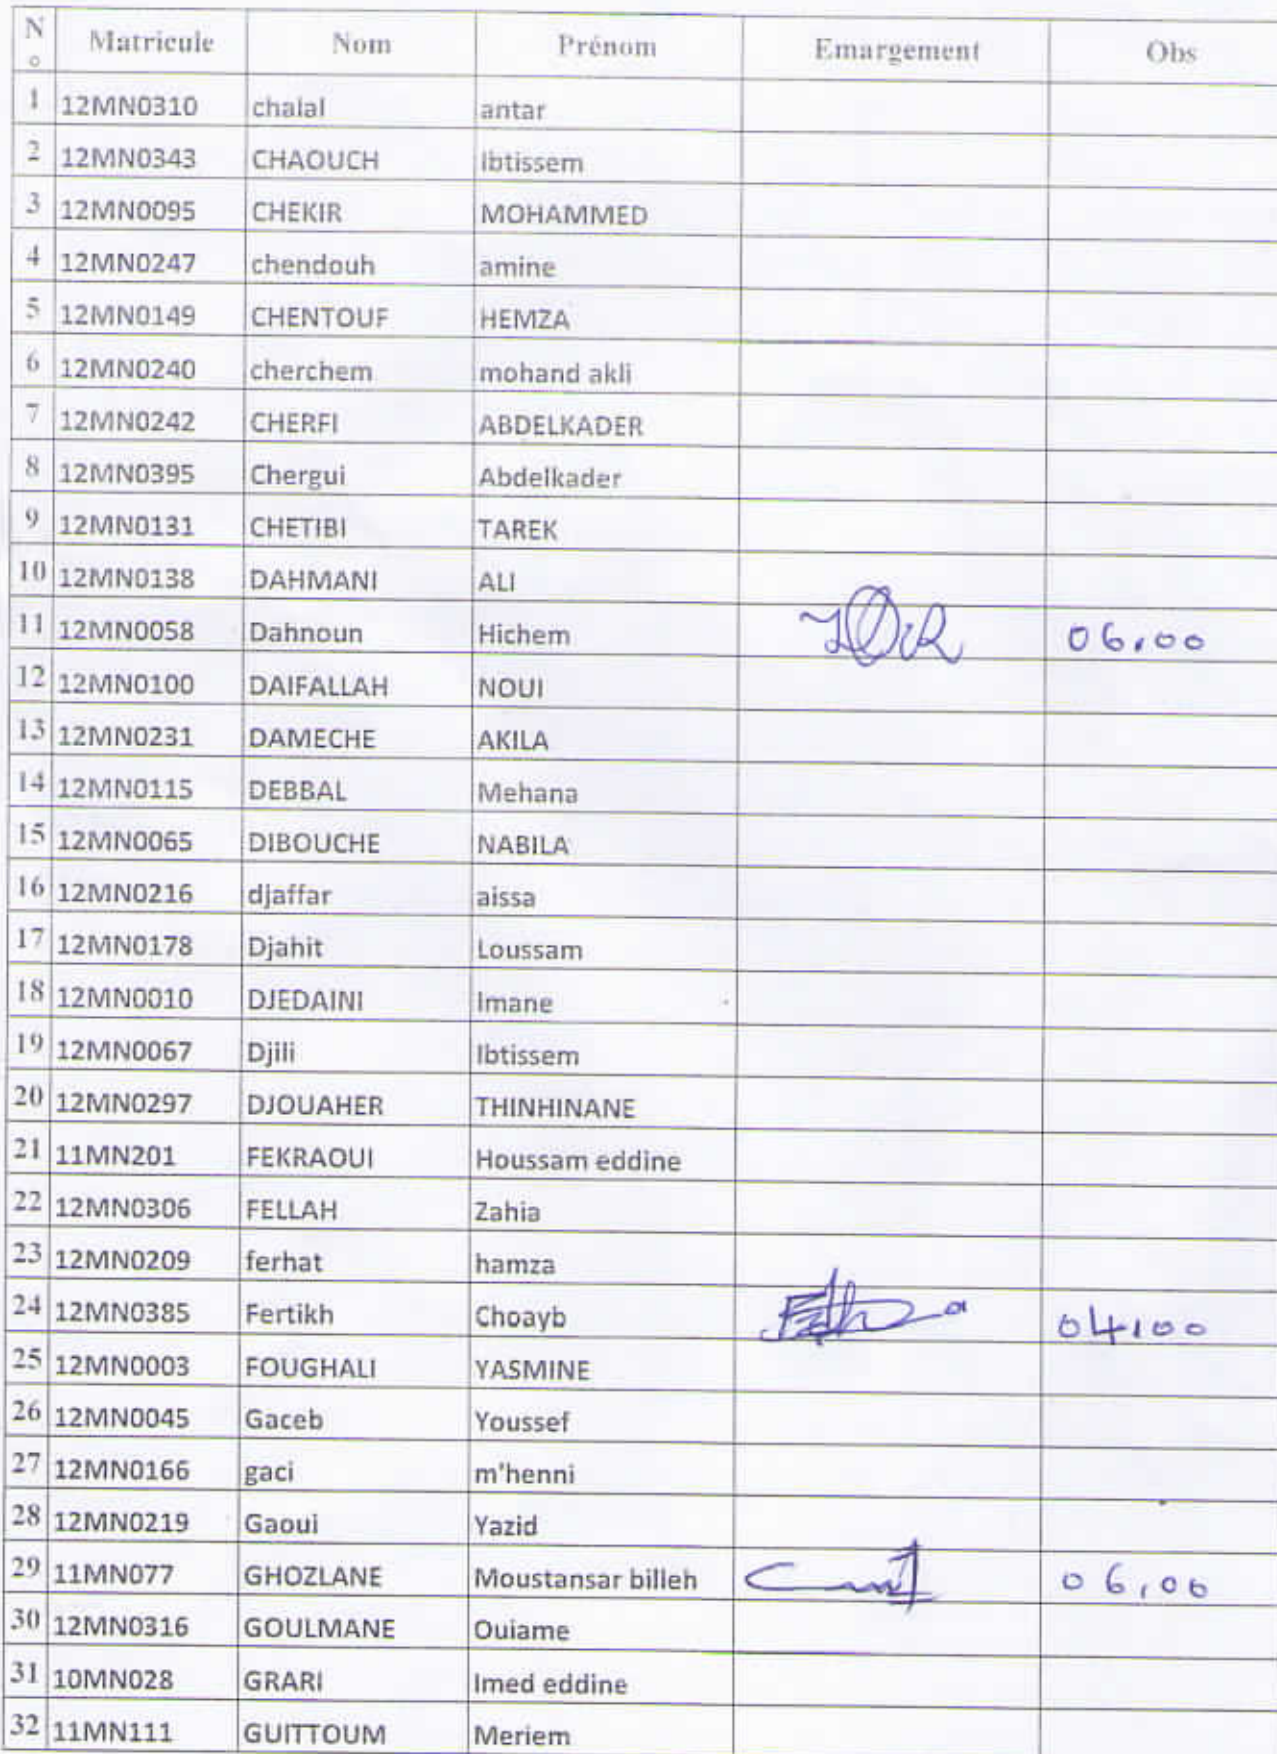 N° Matricule Nom Prénom Emargement Obs
1 12MN0310 chalal antar
2 12MN0343 CHAOUCH Ibtissem
3 12MN0095 CHEKIR MOHAMMED
4 12MN0247 chendouh amine
5 12MN0149 CHENTOUF HEMZA
6 12MN0240 cherchem mohand akli
7 12MN0242 CHERFI ABDELKADER
8 12MN0395 Chergui Abdelkader
9 12MN0131 CHETIBI TAREK
10 12MN0138 DAHMANI ALI
11 12MN0058 Dahnoun Hichem 06,00
12 12MN0100 DAIFALLAH NOUI
13 12MN0231 DAMECHE AKILA
14 12MN0115 DEBBAL Mehana
15 12MN0065 DIBOUCHE NABILA
16 12MN0216 djaffar aissa
17 12MN0178 Djahit Loussam
18 12MN0010 DJEDAINI Imane
19 12MN0067 Djili Ibtissem
20 12MN0297 DJOUAHER THINHINANE
21 11MN201 FEKRAOUI Houssam eddine
22 12MN0306 FELLAH Zahia
23 12MN0209 ferhat hamza
24 12MN0385 Fertikh Choayb 04,00
25 12MN0003 FOUGHALI YASMINE
26 12MN0045 Gaceb Youssef
27 12MN0166 gaci m'henni
28 12MN0219 Gaoui Yazid
29 11MN077 GHOZLANE Moustansar billeh 06,00
30 12MN0316 GOULMANE Ouiame
31 10MN028 GRARI Imed eddine
32 11MN111 GUITTOUM Meriem